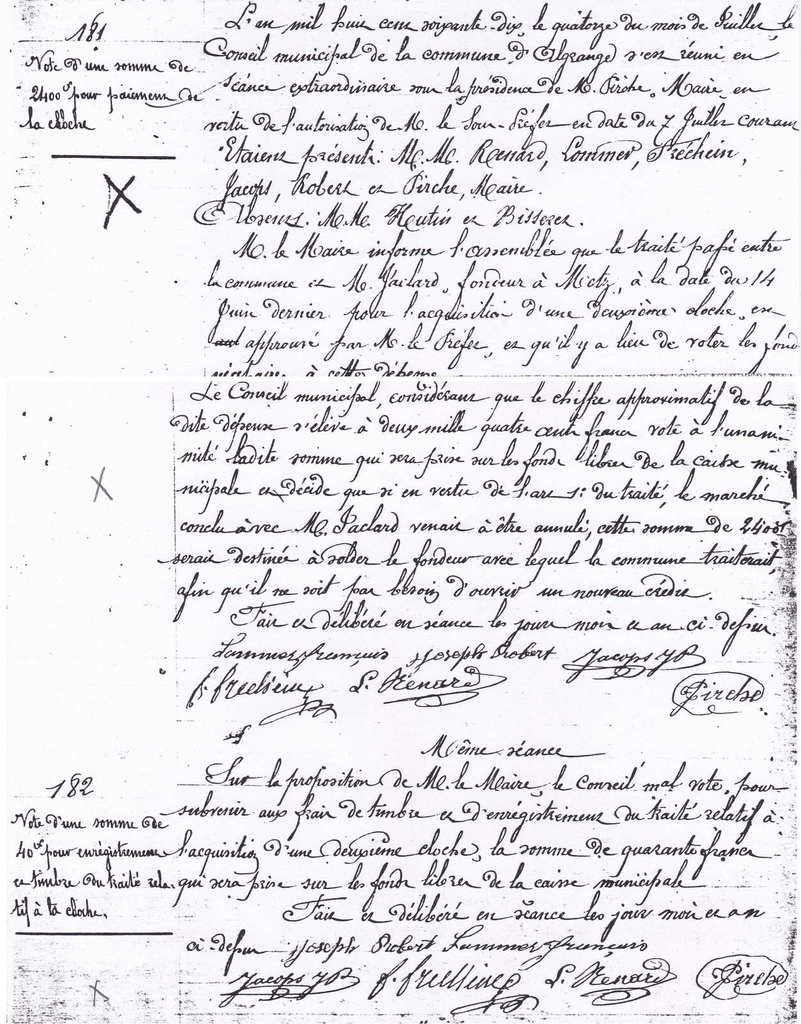 181
Vote d'une somme de
2400f pour paiement de
la cloche
L'an mil huit cent soixante dix, le quatorze du mois de Juillet, le
Conseil municipal de la commune d'Algrange s'est réuni en
séance extraordinaire sous la présidence de M. Pirche, Maire, en
vertu de l'autorisation de M. le Sous-Préfet en date du 7 Juillet courant
Etaient présents: M.M. Renard, Lommer, Fréchein,
Jacops, Robert et Pirche, Maire.
Absents: M.M. Heutin et Bisserer.
M. le Maire informe l'assemblée que le traité passé entre
la commune et M. Jaclard, fondeur à Metz, à la date du 14
Juin dernier pour l'acquisition d'une deuxième cloche, est
approuvé par M. le Préfet, et qu'il y a lieu de voter les fonds
nécessaires à cette dépense
Le Conseil municipal, considérant que le chiffre approximatif de la
dite dépense s'élève à deux mille quatre cents francs vote à l'unani-
mité ladite somme qui sera prise sur les fonds libres de la caisse mu-
nicipale et décide que si en vertu de l'art 1: du traité, le marché
conclu avec M. Jaclard venait à être annulé, cette somme de 2400f
serait destinée à solder le fondeur avec lequel la commune traiterait,
afin qu'il ne soit pas besoin d'ouvrir un nouveau crédit.
Fait et délibéré en séance les jour, mois et an ci-dessus.
Lammer françois Joseph Robert Jacops JP
f. frechein L. Renard Pirche
Même séance
182
Vote d'une somme de
40f pour enregistrement
et timbre du traité rela-
tif à la cloche.
Sur la proposition de M. le Maire, le Conseil mal vote, pour
subvenir aux frais de timbre et d'enrégistrement du traité relatif à
l'acquisition d'une deuxième cloche, la somme de quarante francs
qui sera prise sur les fonds libres de la caisse municipale
Fait et délibéré en séance les jour mois et an
ci dessus Joseph Robert Lammer françois
Jacops JP f. frechein L. Renard Pirche